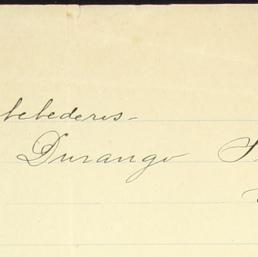 bebederos-
Durango